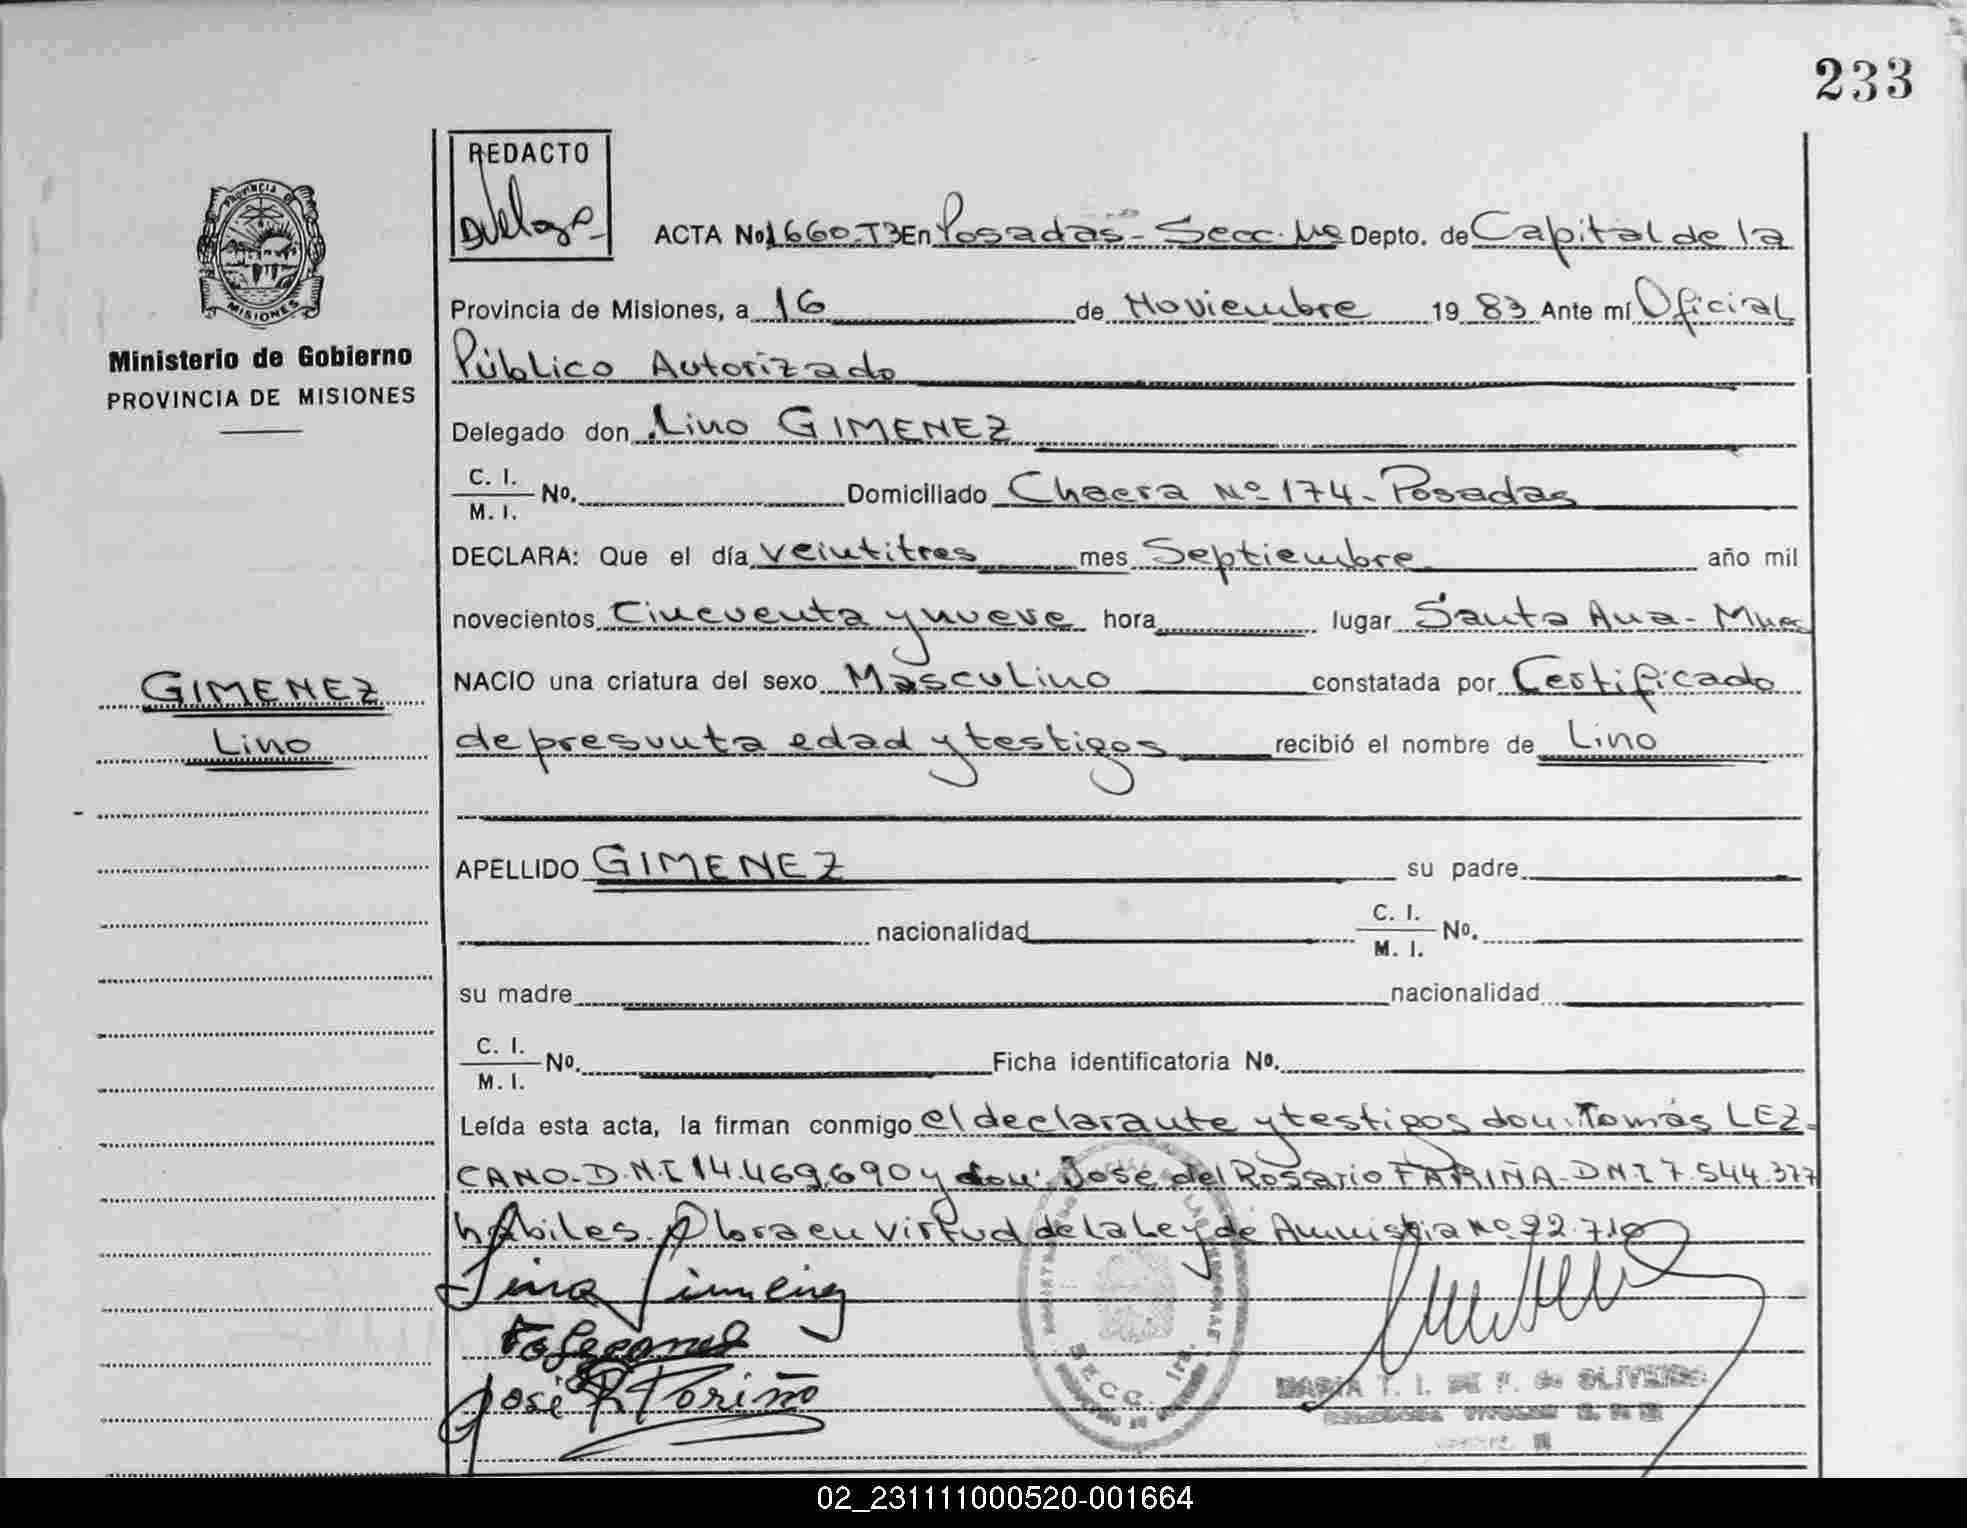 233
REDACTO
ACTA No. 1660-T3 En Posadas - Secc. Depto. de Capital de la
Provincia de Misiones, a 16 de Noviembre 19 83 Ante mí Oficial
Público Autorizado
PROVINCIA DE
MISIONES
Ministerio de Gobierno
PROVINCIA DE MISIONES
Delegado don Lino GIMENEZ
C. I.
M. I. No. Domiciliado Chacra Nº 174 - Posadas
DECLARA: Que el día veintitres mes Septiembre año mil
novecientos Cincuenta y nueve hora lugar Santa Ana - Mnes
NACIO una criatura del sexo Masculino constatada por Certificado
de presunta edad y testigos recibió el nombre de Lino
GIMENEZ
Lino
APELLIDO GIMENEZ su padre
nacionalidad C. I.
M. I. No.
su madre nacionalidad
C. I.
M. I. No. Ficha identificatoria No.
Leída esta acta, la firman conmigo el declarante y testigos don: Tomás LEZ-
CANO - D.N.I 14.469.690 y don: José del Rosario FARIÑA - DNI 7.544.377
hábiles. Obra en virtud de la Ley de Amnistia Nº 22.710
Lino Gimenez
José R Fariña
SECC. 1ra.
MARIA T. I. DE F. de OLIVEIRA
02_231111000520-001664